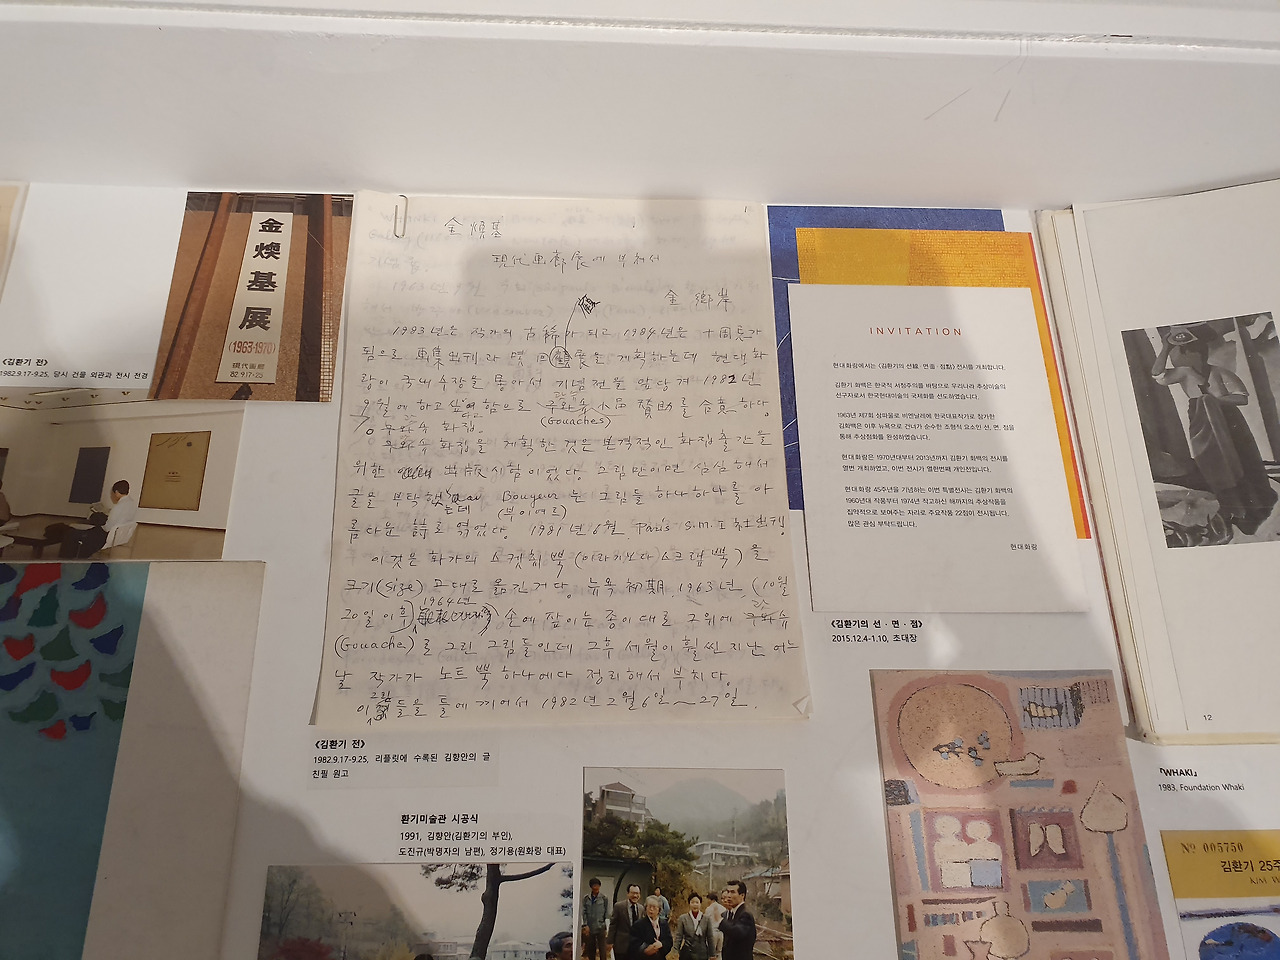 金
煥
基
展
(1963-1970)
現代画廊
82.9.17-25
《김환기 전》
1982.9.17-9.25, 당시 건물 외관과 전시 전경
1
金 煥基
現代画廊展에 부쳐서
金 鄕岸
1983年은 作家의 古稀가 되고 1984년은 十周忌가
됨으로 画集出版과 몇 回顧展을 계획하는데 현대화
랑이 국내 소장을 통아서 기념전을 앞당겨 1982년
9월에 하고싶어함으로 구와슈 小品 賛助를 合意하다.
(Gouaches)
구와슈 화집.
구와슈 화집을 계획한 것은 본격적인 화집출간을
위한 出版시험이었다. 그림만이면 심심해서
글을 부탁했는데 Bouyeur는 그림들 하나하나를 아
(부이예르)
름다운 詩로 엮었다. 1981년 6월 Paris S.M.I 社出版
이것은 화가의 스켓취 뿍 (이라기보다 스크랩뿍)을
크기(size) 그대로 옮긴거다. 뉴욕初期 1963년 (10월
1964년
20일 이후) 손에 잡이는 종이대로 그위에 구와슈
(Gouache)를 그린 그림들인데 그후 세월이 훨씬 지난 어느
날 작가가 노트뿍 하나에다 정리해서 부치다.
그림
이 들을 틀에 끼어서 1982년 2월 6일~27일.
《김환기 전》
1982.9.17-9.25, 리플릿에 수록된 김향안의 글
친필 원고
환기미술관 시공식
1991, 김향안(김환기의 부인),
도진규(박명자의 남편), 정기용(원화랑 대표)
INVITATION
현대화랑에서는 《김환기의 선線·면面·점點》 전시를 개최합니다.
김환기 화백은 한국적 서정주의를 바탕으로 우리나라 추상미술의
선구자로서 한국현대미술의 국제화를 선도하였습니다.
1963년 제7회 상파울로 비엔날레에 한국대표작가로 참가한
김화백은 이후 뉴욕으로 건너가 순수한 조형적 요소인 선, 면, 점을
통해 추상점화를 완성하였습니다.
현대화랑은 1970년대부터 2013년까지 김환기 화백의 전시를
열번 개최하였고, 이번 전시가 열한번째 개인전입니다.
현대화랑 45주년을 기념하는 이번 특별전시는 김환기 화백의
1960년대 작품부터 1974년 작고하신 해까지의 추상작품을
집약적으로 보여주는 자리로 주요작품 22점이 전시됩니다.
많은 관심 부탁드립니다.
현대화랑
《김환기의 선·면·점》
2015.12.4-1.10, 초대장
12
『WHAKI』
1983, Foundation Whaki
Nº 005750
김환기 25주
KIM W